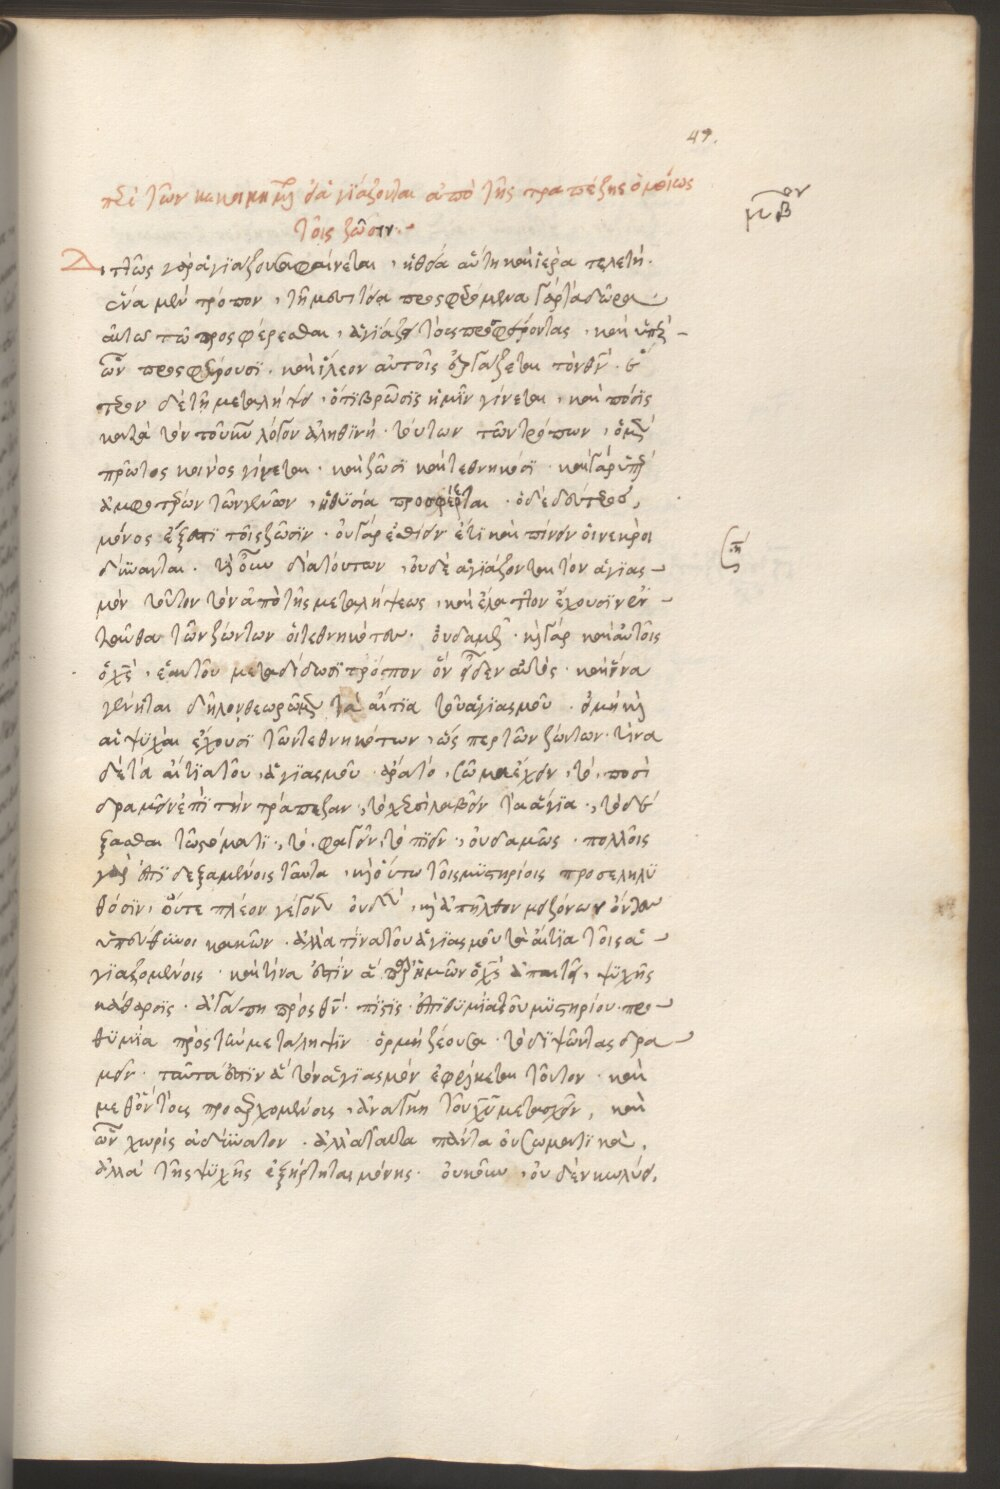 47.
περὶ τῶν κεκοιμημένων ὅτι ἁγιάζονται ἀπὸ τῆς τραπέζης ὁμοίως
τοῖς ζῶσιν.
μβ ον
Διπλῶς γὰρ ἁγιάζουσα φαίνεται, ἡ θεία αὕτη καὶ ἱερὰ τελετή.
ἕνα μὲν τρόπον, τῇ μεσιτείᾳ προσφερόμενα γὰρ τὰ δῶρα
αὐτῷ τῷ προσφέρεσθαι, ἁγιάζει τοὺς προσφέροντας, καὶ ὑπὲρ
ὧν προσφέρουσι. καὶ ἵλεον αὐτοῖς ἐργάζεται τὸν θν. δεύ
τερον δὲ τῇ μεταλήψει, ὅτι βρῶσις ἡμῖν γίνεται, καὶ πόσις
κατὰ τὸν τοῦ κυ λόγον ἀληθινή. τούτων τῶν τρόπων, ὁ μὲν
πρῶτος κοινὸς γίνεται. καὶ ζῶσι καὶ τεθνηκόσι. καὶ γὰρ ὑπὲρ
ἀμφοτέρων τῶν γενῶν, ἡ θυσία προσφέρεται. ὁ δὲ δεύτερος,
μόνος ἔξεστι τοῖς ζῶσιν. οὐ γὰρ ἐσθίειν ἔτι καὶ πίνειν οἱ νεκροὶ
δύνανται. τί οὖν διατούτων, οὐδὲ ἁγιάζονται τὸν ἁγιας
μὸν τοῦτον τὸν ἀπὸ τῆς μεταλήψεως, καὶ ἔλαττον ἔχουσιν ἐν
ταῦθα τῶν ζώντων οἱ τεθνηκότες. οὐδαμῶς. καὶ γὰρ καὶ αὐτοῖς
ὁ χς, ἑαυτοῦ μεταδίδωσι τρόπον ὃν οἶδεν αὐτός. καὶ ἵνα
γένηται δῆλον θεωρῶμεν τὰ αἴτια τοῦ ἁγιασμοῦ. ὁ μὴ καὶ
αἱ ψυχαὶ ἔχουσι τῶν τεθνηκότων, ὥς περ τῶν ζώντων. τίνα
δὲ τὰ αἴτια τοῦ, ἁγιασμοῦ. ἆρα τό, σῶμα ἔχειν, τό, ποσὶ
δραμεῖν ἐπὶ τὴν τράπεζαν, τὸ χερσὶ λαβεῖν τὰ ἅγια, τὸ δέ
ξασθαι τῷ στόματι, τό, φαγεῖν, τὸ πιεῖν, οὐδαμῶς. πολλοῖς
γὰρ ἐπὶ δεξαμένοις ταῦτα, καὶ οὕτω τοῖς μυστηρίοις προσεληλυ
θόσιν, οὔτε πλέον γέγονεν οὐδέν, καὶ ἀπῆλθον μειζόνων ὄντες
ὑπεύθυνοι κακῶν. ἀλλὰ τίνα τοῦ ἁγιασμοῦ τὰ αἴτια τοῖς ἁ
γιαζομένοις. καὶ τίνα ἐστὶν ἃ παρ' ἡμῶν ὁ χς ἀπαιτεῖ, ψυχῆς
κάθαρσις. ἀγάπη πρὸς θν. πίστις. ἐπιθυμία τοῦ μυστηρίου. προ
θυμία πρὸς τὴν μετάληψιν ὁρμὴ ζέουσα. τὸ διψῶντας δρα
μεῖν. ταῦτά ἐστιν ἃ τὸν ἁγιασμὸν ἐφέλκεται τοῦτον. καὶ
μεθ' ὧν τοὺς προσερχομένους, ἀνάγκη τοῦ χυ μετασχεῖν, καὶ
ὧν χωρὶς ἀδύνατον. ἀλλὰ ταῦτα πάντα οὐ σωματικά,
ἀλλὰ τῆς ψυχῆς ἐξήρτηται μόνης. οὐκοῦν, οὐδὲν κωλύει,